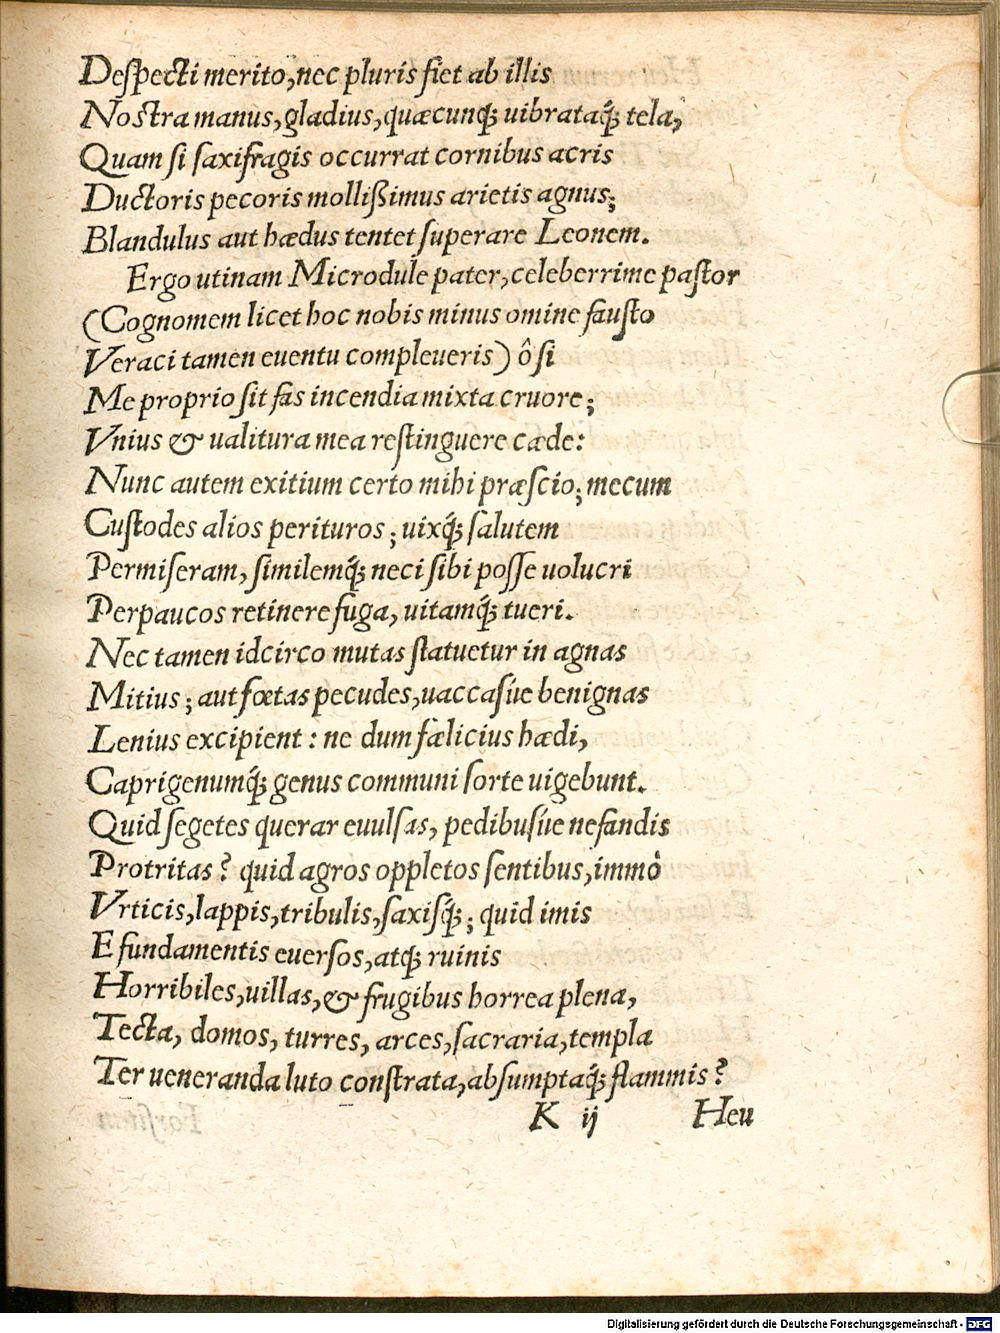 Deſpecti merito, nec pluris fiet ab illis
Nostra manus, gladius, quæcunq́; uibrataq́; tela,
Quam ſi ſaxifragis occurrat cornibus acris
Ductoris pecoris molliſſimus arietis agnus;
Blandulus aut hædus tentet ſuperare Leonem.
Ergo utinam Microdule pater, celeberrime paſtor
(Cognomem licet hoc nobis minus omine fauſto
Veraci tamen euentu compleueris) ô ſi
Me proprio ſit fas incendia mixta cruore;
Vnius & ualitura mea reſtinguere cæde:
Nunc autem exitium certo mihi præſcio; mecum
Cuſtodes alios perituros; uixq́; ſalutem
Permiſeram, ſimilemq́; neci ſibi poſſe uolucri
Perpaucos retinere fuga, uitamq́; tueri.
Nec tamen idcirco mutas ſtatuetur in agnas
Mitius; aut fœtas pecudes, uaccaſúe benignas
Lenius excipient: ne dum fælicius hædi,
Caprigenumq́; genus communi ſorte uigebunt.
Quid ſegetes querar euulſas, pedibuſúe nefandis
Protritas? quid agros oppletos ſentibus, immò
Vrticis, lappis, tribulis, ſaxiſq́; ; quid imis
E fundamentis euerſos, atq; ruinis
Horribiles, uillas, & frugibus horrea plena,
Tecta, domos, turres, arces, ſacraria, templa
Ter ueneranda luto conſtrata, abſumptaq́; flammis?
K ij Heu
Digitalisierung gefördert durch die Deutsche Forschungsgemeinschaft - DFG